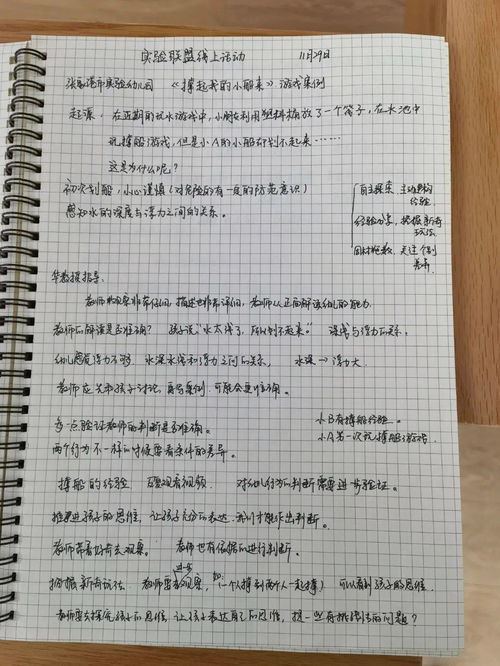 实验联盟线上活动 11月29日
张家港市实验幼儿园 《撑起我的小船来》游戏案例
起源：在近期的玩水游戏中，小朋友利用塑料桶放了一个筏子，在水池中
玩撑船游戏，但是小A的小船却划不起来……
这是为什么呢？
初次划船，小心谨慎（对危险的有一定的防范意识）
感知水的深度与浮力之间的关系。
自主探索 主动
经验。
经验分享，挖掘新奇
玩法。
因材施教，关注个别
差异
华教授指导：
教师的观察非常仔细，描述也非常详细，教师从正面解读幼儿的能力。
教师的解读是否准确？ 孩子说“水太浅了，所以划不起来。” 深浅与浮力的关系。
幼儿感知浮力不够 水深水浅和浮力之间的关系， 水深→浮力大。
教师应关和孩子讨论，再写案例，可能会更准确。
多一点验证教师的判断是否准确。
两个行为不一样的时候要看条件的差异。
小B有撑船经验。
小A第一次玩撑船游戏。
撑船的经验 要观看视频 对幼儿行为的判断需要进一步验证。
推进孩子的思维，让孩子充分的表达，我们才能作出判断。
教师带着好奇去观察。 教师也有依据的进行判断。
进一步
挖掘新有玩法 教师要观察，如（一个人撑到两个人一起撑） 可以看到孩子的思维
教师要去探究孩子的思维，让孩子表达自己的思维，提一些有挑战的问题？